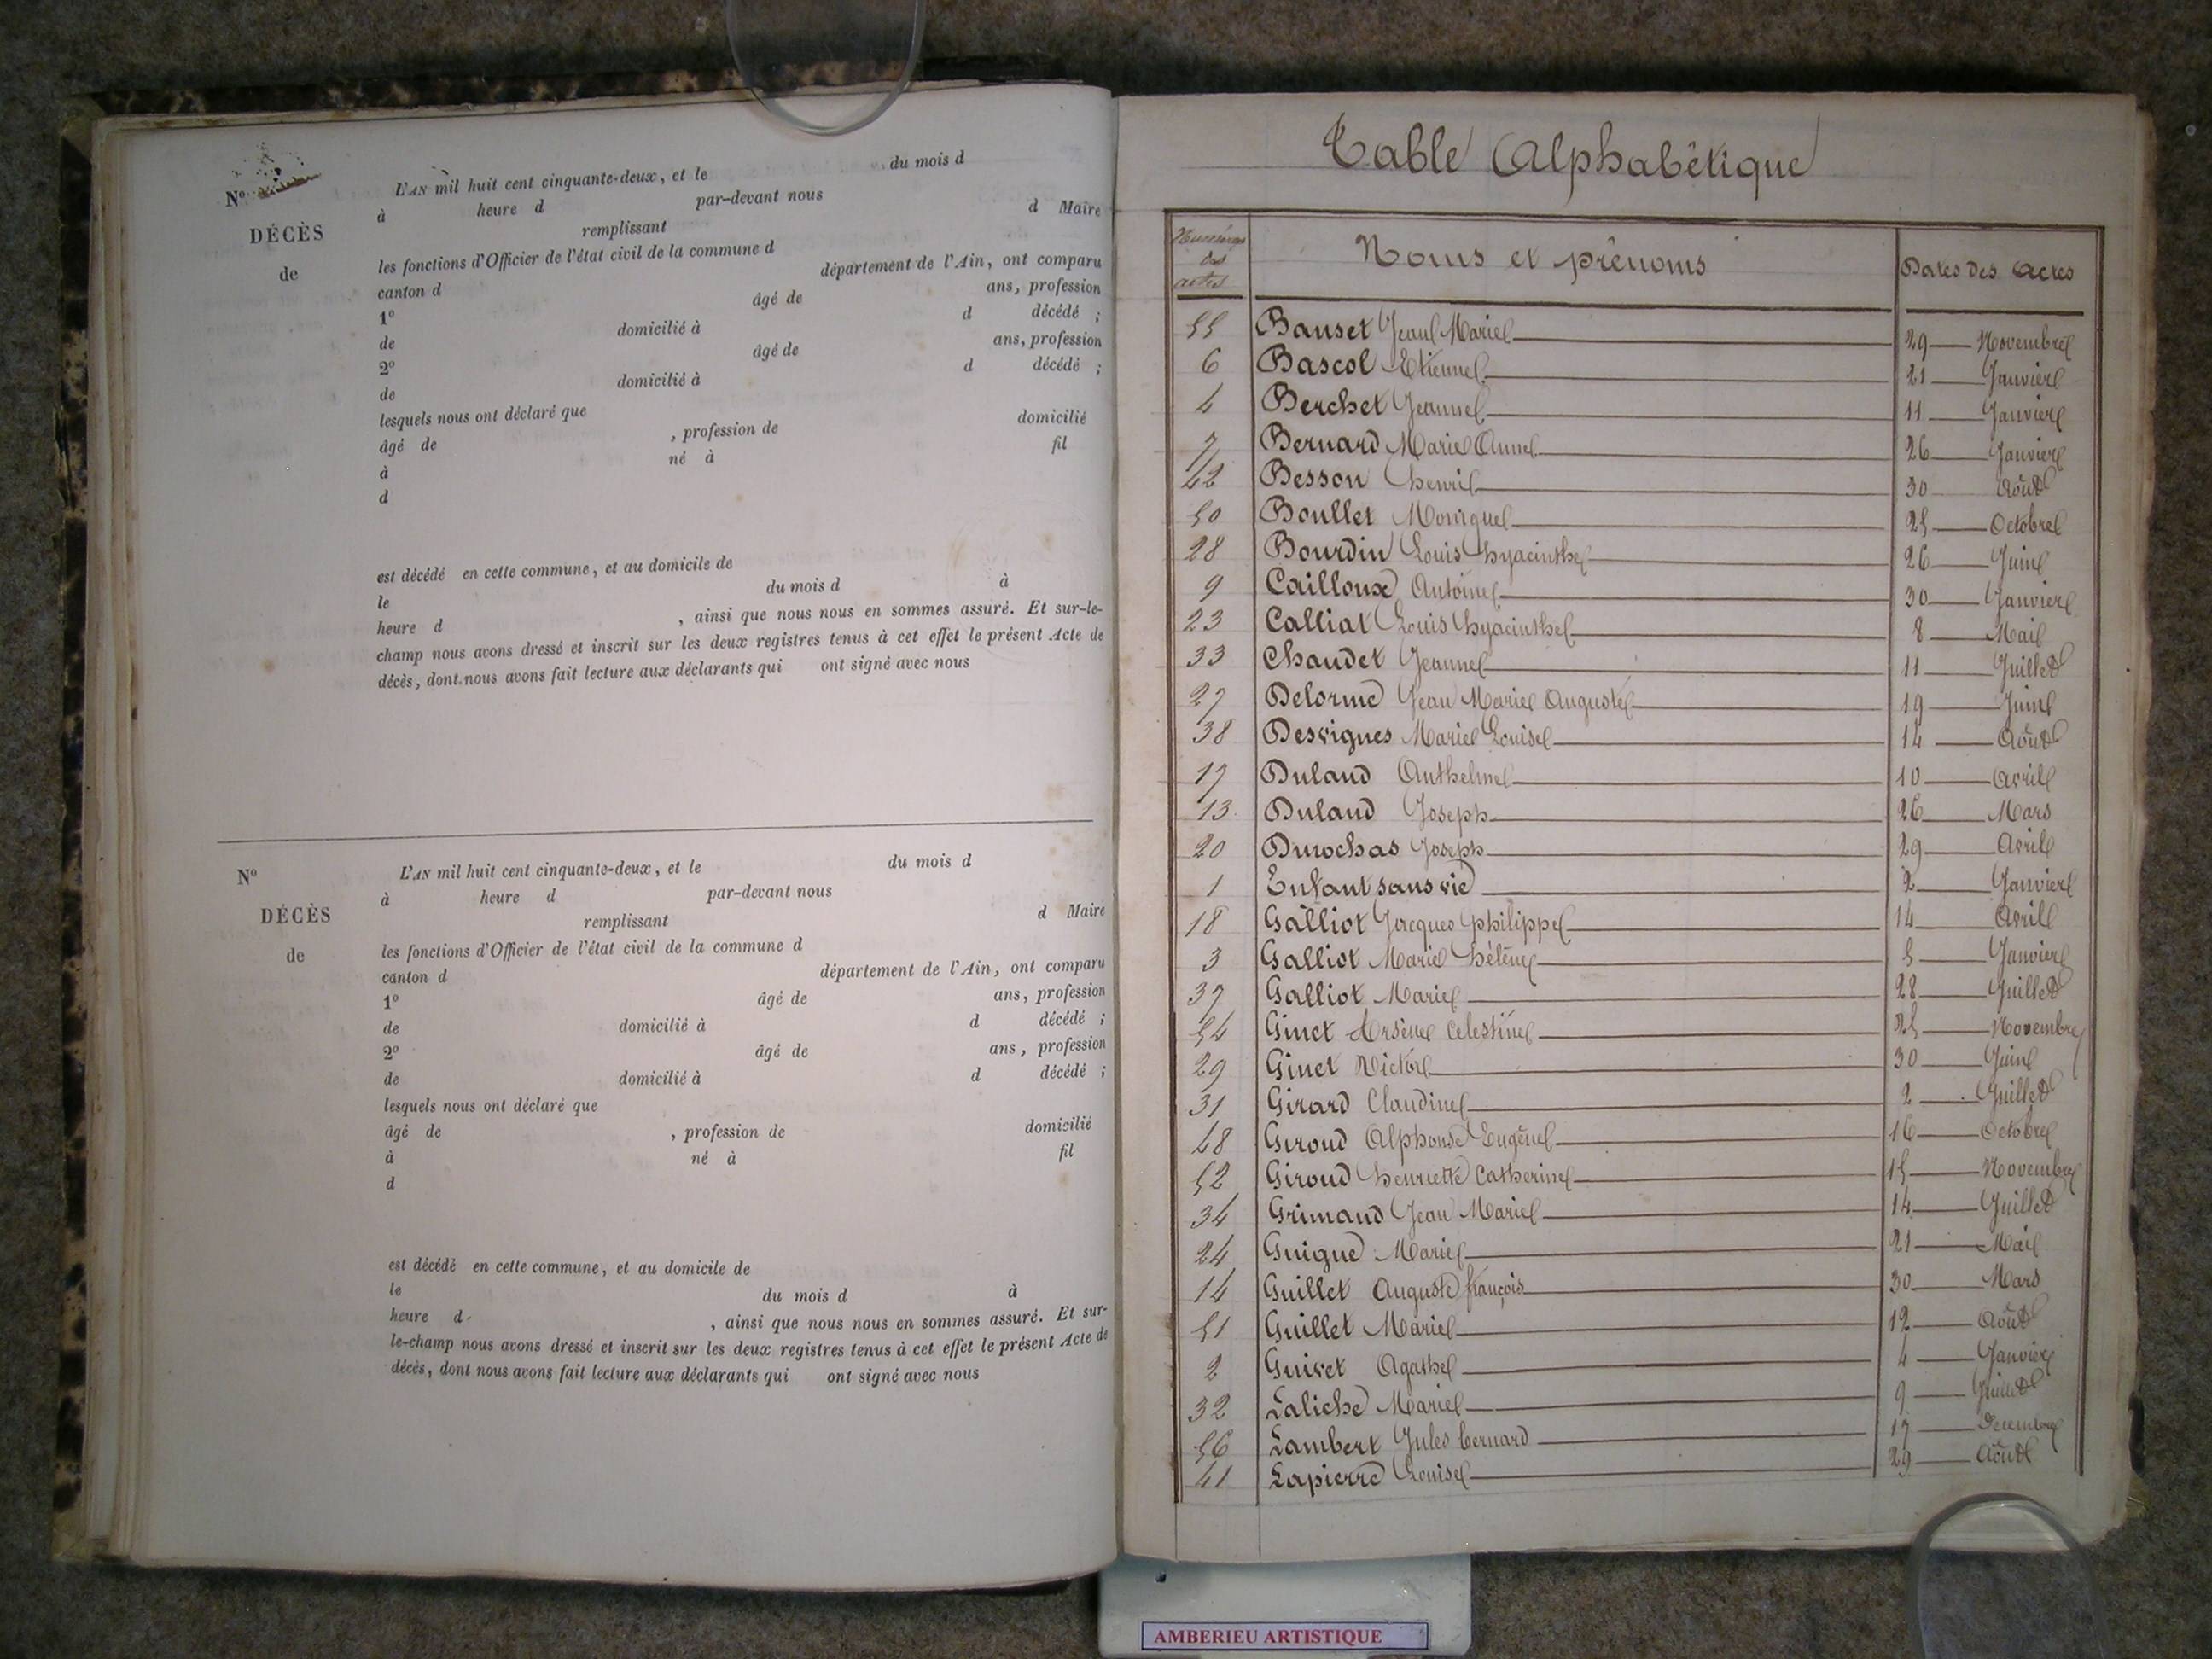 Nº
DÉCÈS
de
L'AN mil huit cent cinquante-deux, et le du mois d
à heure d par-devant nous
remplissant d Maire
les fonctions d'Officier de l'état civil de la commune d
canton d département de l'Ain, ont comparu
1º âgé de ans, profession
de domicilié à d décédé ;
2º âgé de ans, profession
de domicilié à d décédé ;
lesquels nous ont déclaré que
âgé de , profession de domicilié
à né à fil
d
est décédé en cette commune, et au domicile de
le du mois d à
heure d , ainsi que nous nous en sommes assuré. Et sur-le-
champ nous avons dressé et inscrit sur les deux registres tenus à cet effet le présent Acte de
décès, dont nous avons fait lecture aux déclarants qui ont signé avec nous
Nº
DÉCÈS
de
L'AN mil huit cent cinquante-deux, et le du mois d
à heure d par-devant nous
remplissant d Maire
les fonctions d'Officier de l'état civil de la commune d
canton d département de l'Ain, ont comparu
1º âgé de ans, profession
de domicilié à d décédé ;
2º âgé de ans, profession
de domicilié à d décédé ;
lesquels nous ont déclaré que
âgé de , profession de domicilié
à né à fil
d
est décédé en cette commune, et au domicile de
le du mois d à
heure d , ainsi que nous nous en sommes assuré. Et sur-
le-champ nous avons dressé et inscrit sur les deux registres tenus à cet effet le présent Acte de
décès, dont nous avons fait lecture aux déclarants qui ont signé avec nous
Table Alphabétique
Numéros des actes Noms et prénoms Dates des actes
55 Banset Jean Marie 29 Novembre
6 Bascol Etienne 21 Janvier
4 Berchet Jeanne 11 Janvier
7 Bernard Marie Anne 26 Janvier
42 Besson henri 30 Août
50 Boullet Monique 25 Octobre
28 Bourdin Louis hyacinthe 26 Juin
9 Cailloux Antoine 30 Janvier
23 Calliat Louis hyacinthe 8 Mai
33 Chaudet Jeanne 11 Juillet
27 Delorme Jean Marie Auguste 19 Juin
38 Desvignes Marie Louise 14 Août
17 Duland Anthelme 10 Avril
13 Duland Joseph 26 Mars
20 Durochas Joseph 29 Avril
1 Enfant sans vie 2 Janvier
18 Galliot Jacques philippe 14 Avril
3 Galliot Marie hélène 5 Janvier
37 Galliot Marie 28 Juillet
54 Ginet Arsène Celestine 25 Novembre
29 Ginet Victor 30 Juin
31 Girard Claudine 2 Juillet
48 Giroud Alphonse Eugène 16 Octobre
52 Giroud henriette Catherine 15 Novembre
34 Grimaud Jean Marie 14 Juillet
24 Guigue Marie 21 Mai
14 Guillet Auguste françois 30 Mars
51 Guillet Marie 12 Août
2 Guivet Agathe 4 Janvier
32 Laliche Marie 9 Juillet
56 Lambert Jules bernard 17 Decembre
41 Lapierre Louise 29 Août
AMBERIEU ARTISTIQUE